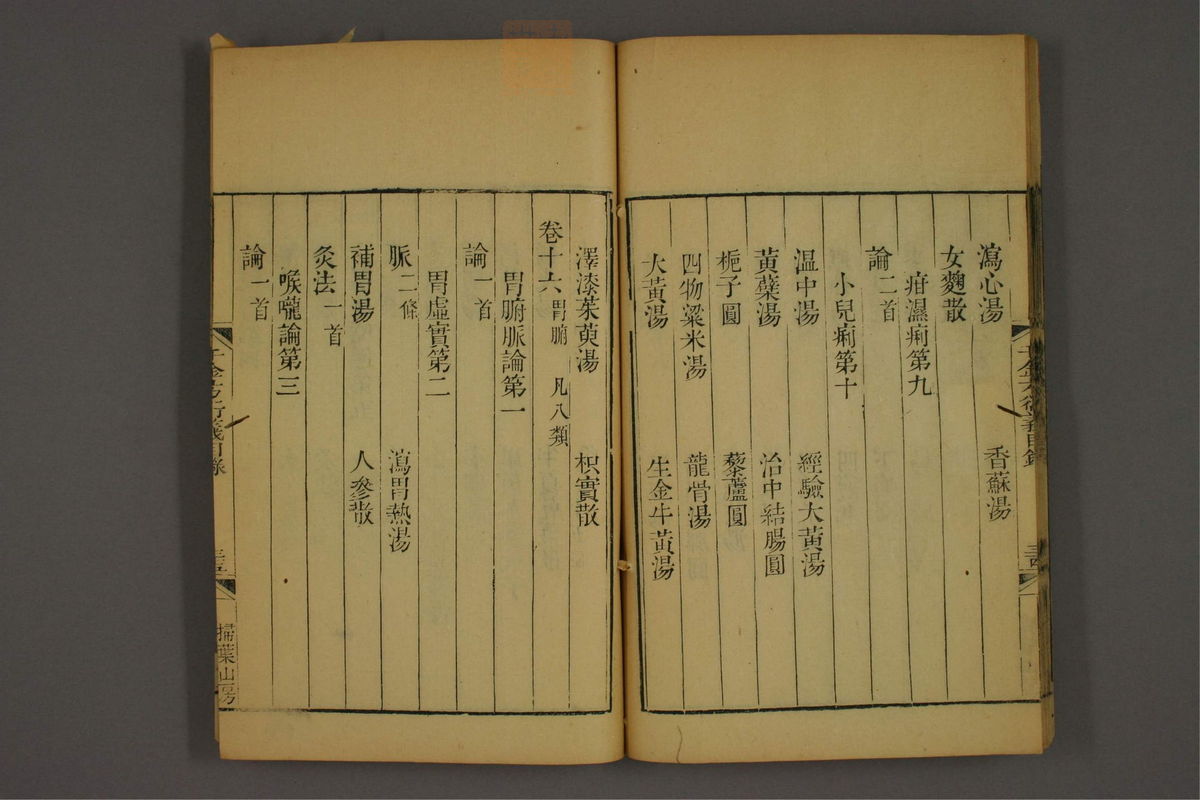 瀉心湯 香蘇湯
女麴散
疳濕痢第九
論二首
小兒痢第十
温中湯 經驗大黃湯
黃蘗湯 治中結腸圓
梔子圓 藜蘆圓
四物粱米湯 龍骨湯
大黃湯 生金牛黃湯
澤漆茱萸湯 枳實散
卷十六 胃腑 凡八類
胃腑脈論第一
論一首
胃虛實第二
脈二條 瀉胃熱湯
補胃湯 人參散
灸法一首
喉嚨論第三
論一首
千金方衍義目錄 三五 掃葉山房